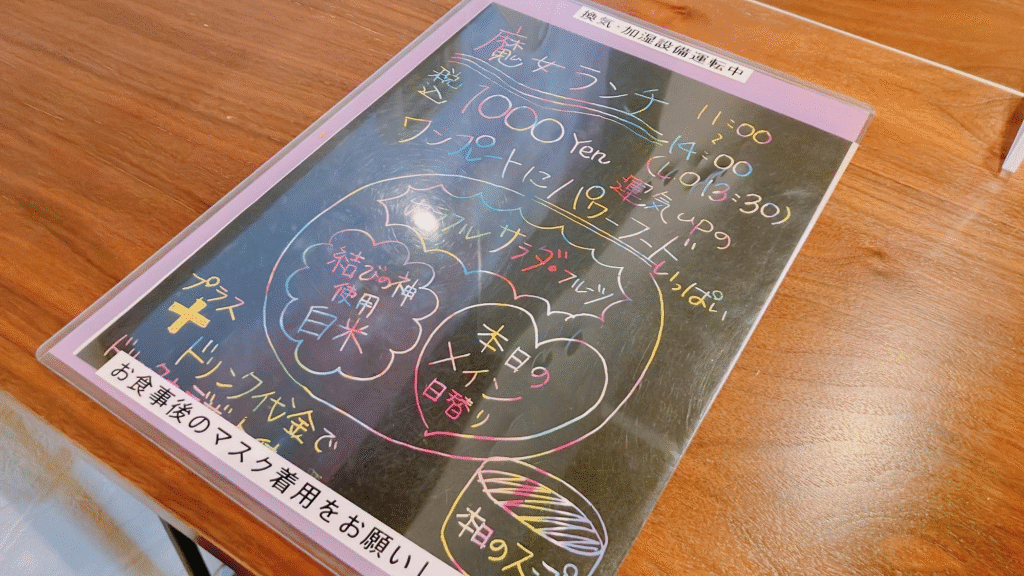 換気・加湿設備運転中
魔女ランチ
11:00
~
14:00
(LO13:30)
税込
1000Yen
運気upの
ワンプレートにパワーフードいっぱい
サラダ・フルーツ
結びの神
使用
白米
本日の
メイン
日替り
プラス
+
ドリンク代金で
お食事後のマスク着用をお願い
本日のスープ